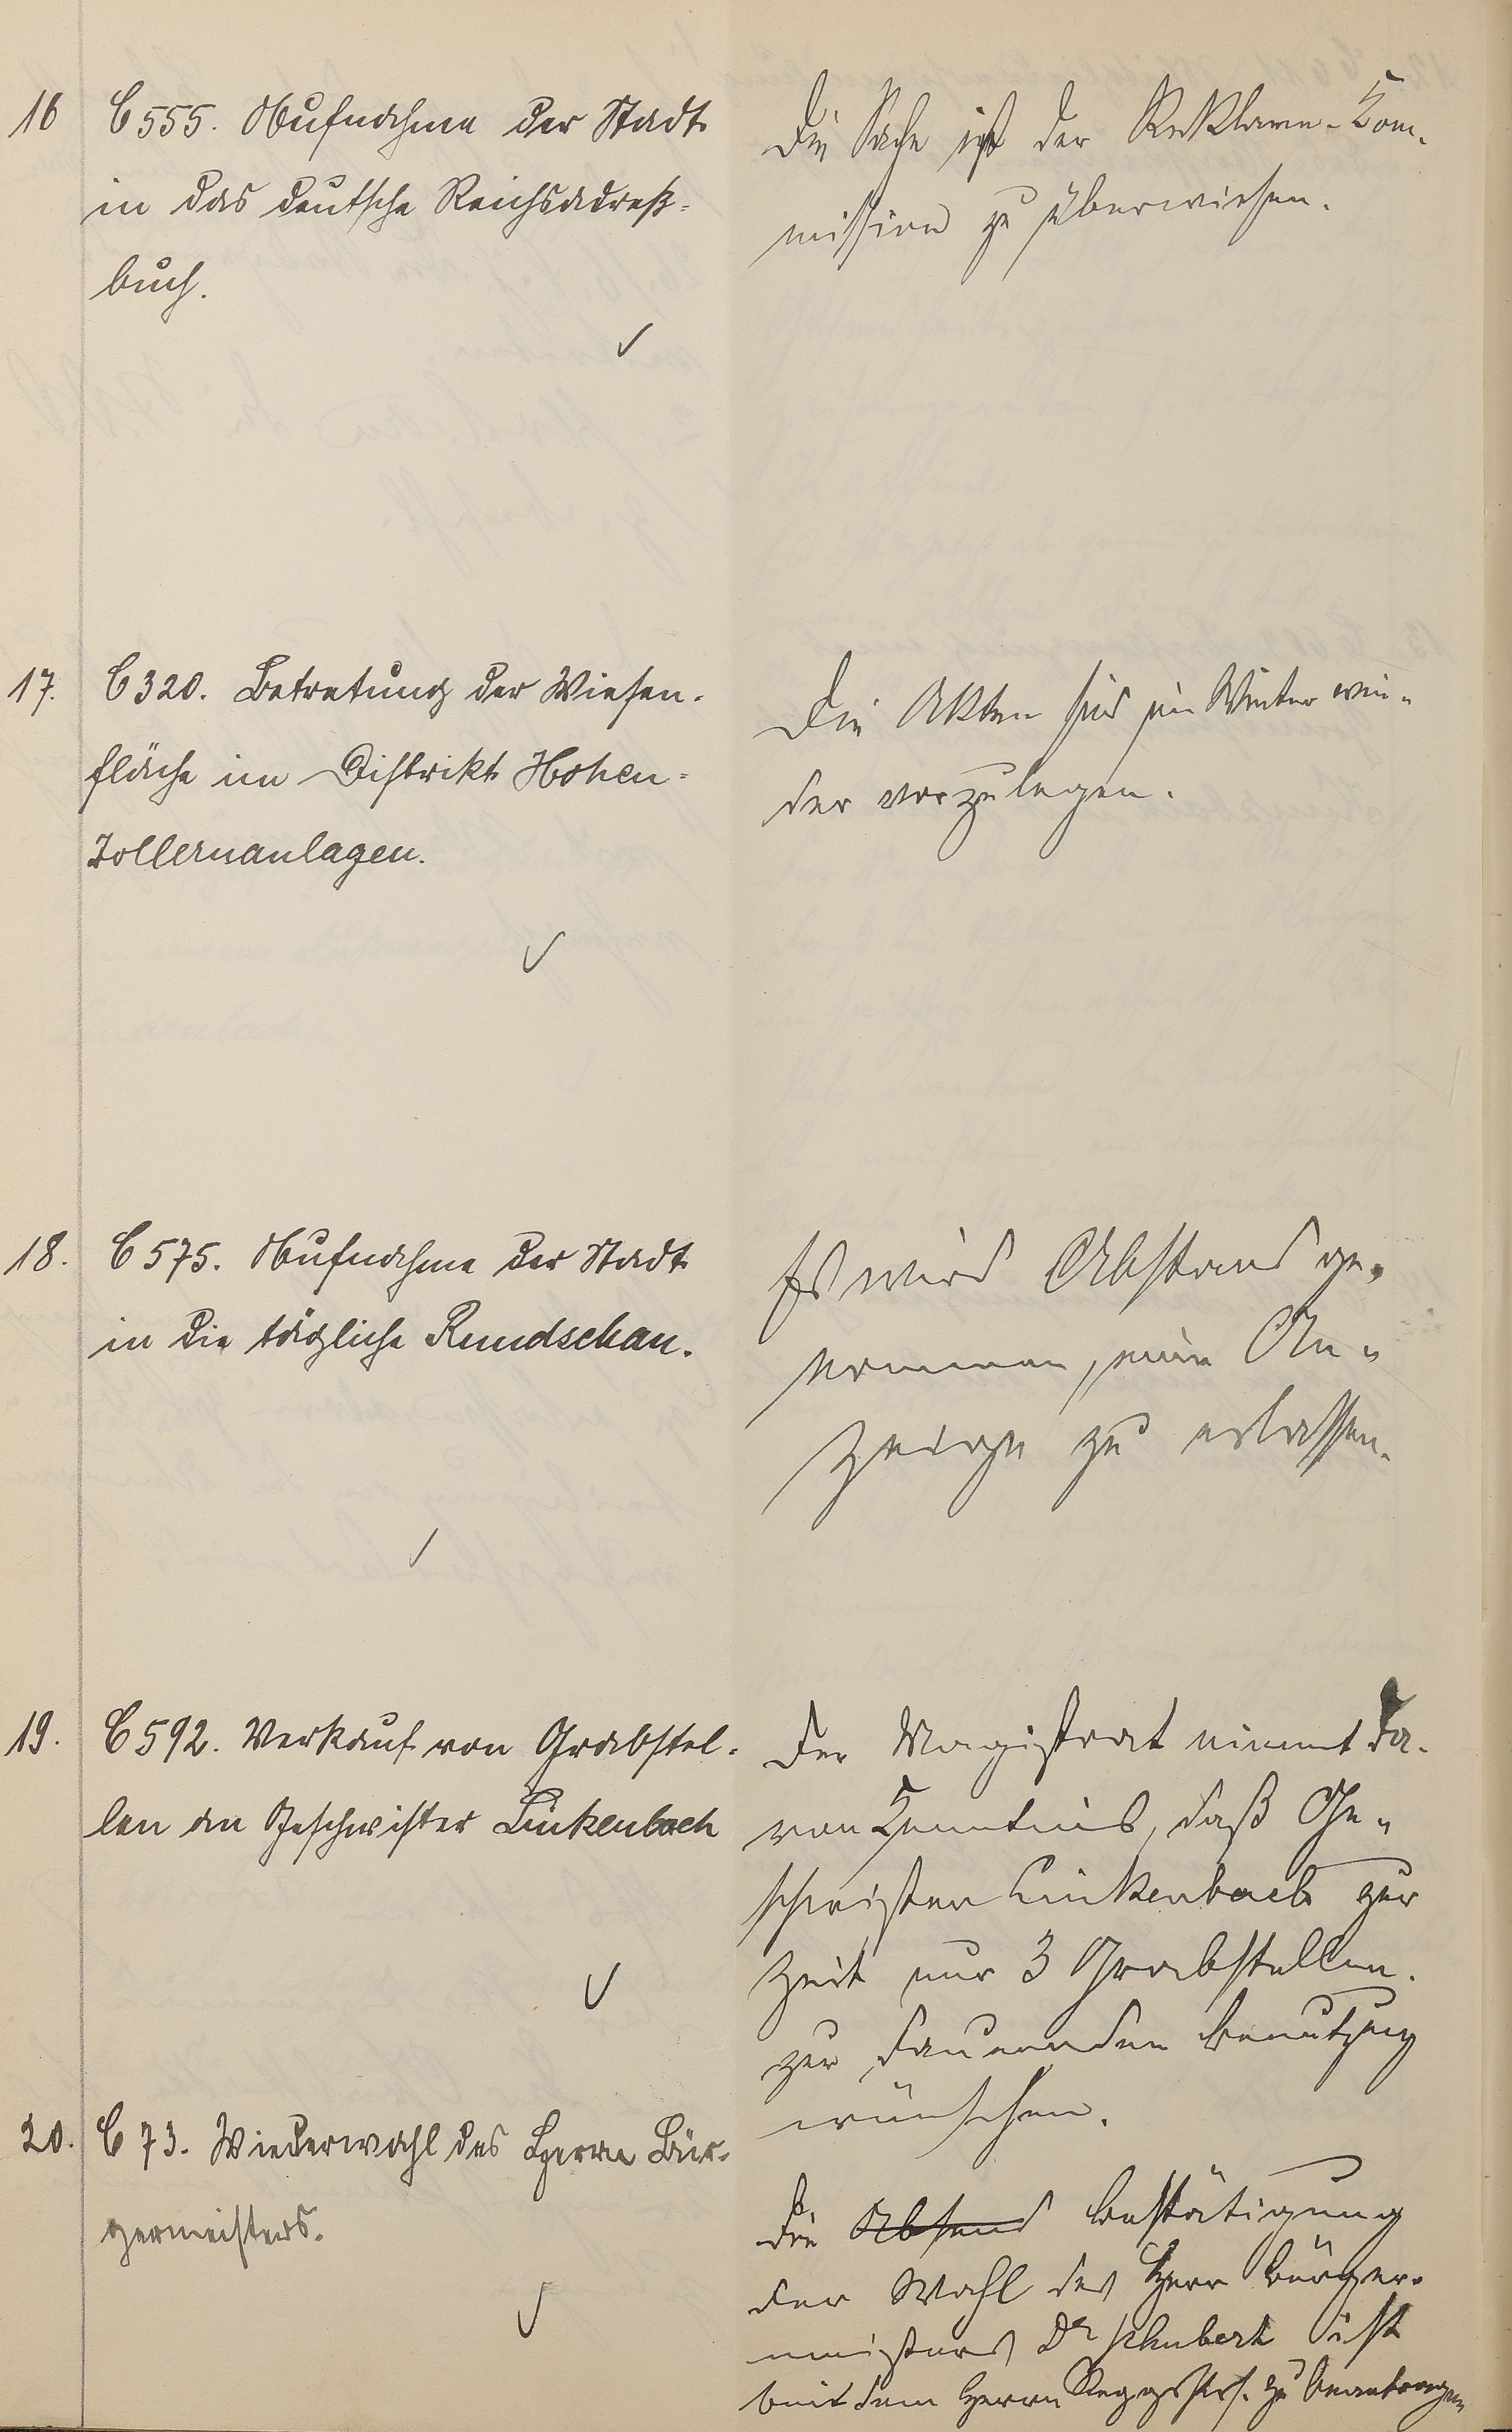 16 C 555. Aufnahme der Stadt
in das deutsche Reichsadreß-
buch.
Die Sache ist der Reklame-Kom-
mission zu überweisen.
17. C 320. Betretung der Wiesen-
fläche im Distrikt Hohen-
zollernanlagen.
Die Akten sind im Winter wie-
der vorzulegen.
18. C 575. Aufnahme der Stadt
in die tägliche Rundschau.
Es wird Abstand ge-
nommen, eine An-
zeige zu erlassen.
19. C 592. Verkauf von Grabstel-
len an Geschwister Linkenbach
Der Magistrat nimmt da-
von Kenntnis, daß Ge-
schwister Linkenbach zur
Zeit nur 3 Grabstellen
zur dauernden Benutzung
wünschen.
20. C 73. Wiederwahl des Herrn Bür-
germeisters.
Die Bestätigung
der Wahl des Herr Bürger-
meisters Dr Schubert ist
beit dem Herrn zu beantragen